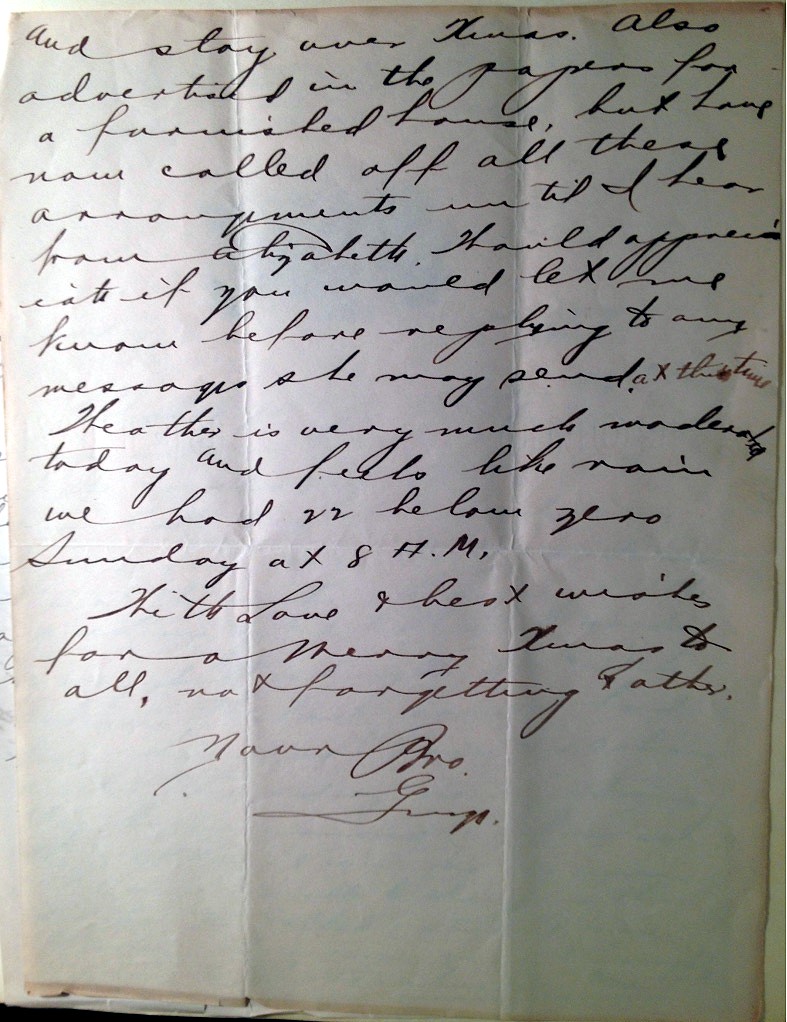 and stay over Xmas. Also
advertised in the papers for
a furnished house, but have
now called off all these
arrangements until I hear
from Elizabeth. Should apprec
iate if you would let me
know before replying to any
message she may send. at this time
Weather is very much moderated
today and feels like rain
we had 22 below zero
Sunday at 8 A.M.
With Love & best wishes
for a Merry Xmas to
all, not forgetting Father.
Your Bro.